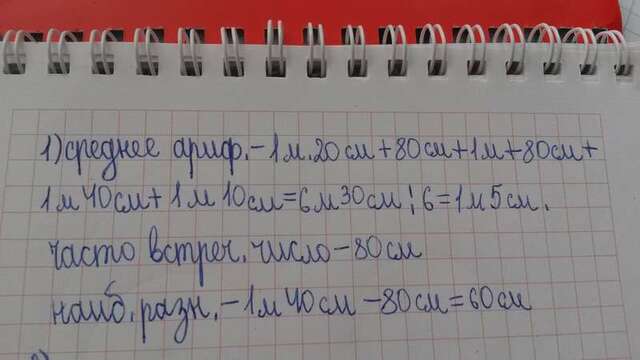 1) среднее ариф.-1м.20см+80см+1м+80см+
1м 40см+1м 10см=6м30см:6=1м5см.
часто встреч. число-80см
наиб. разн.-1м40см-80см=60см